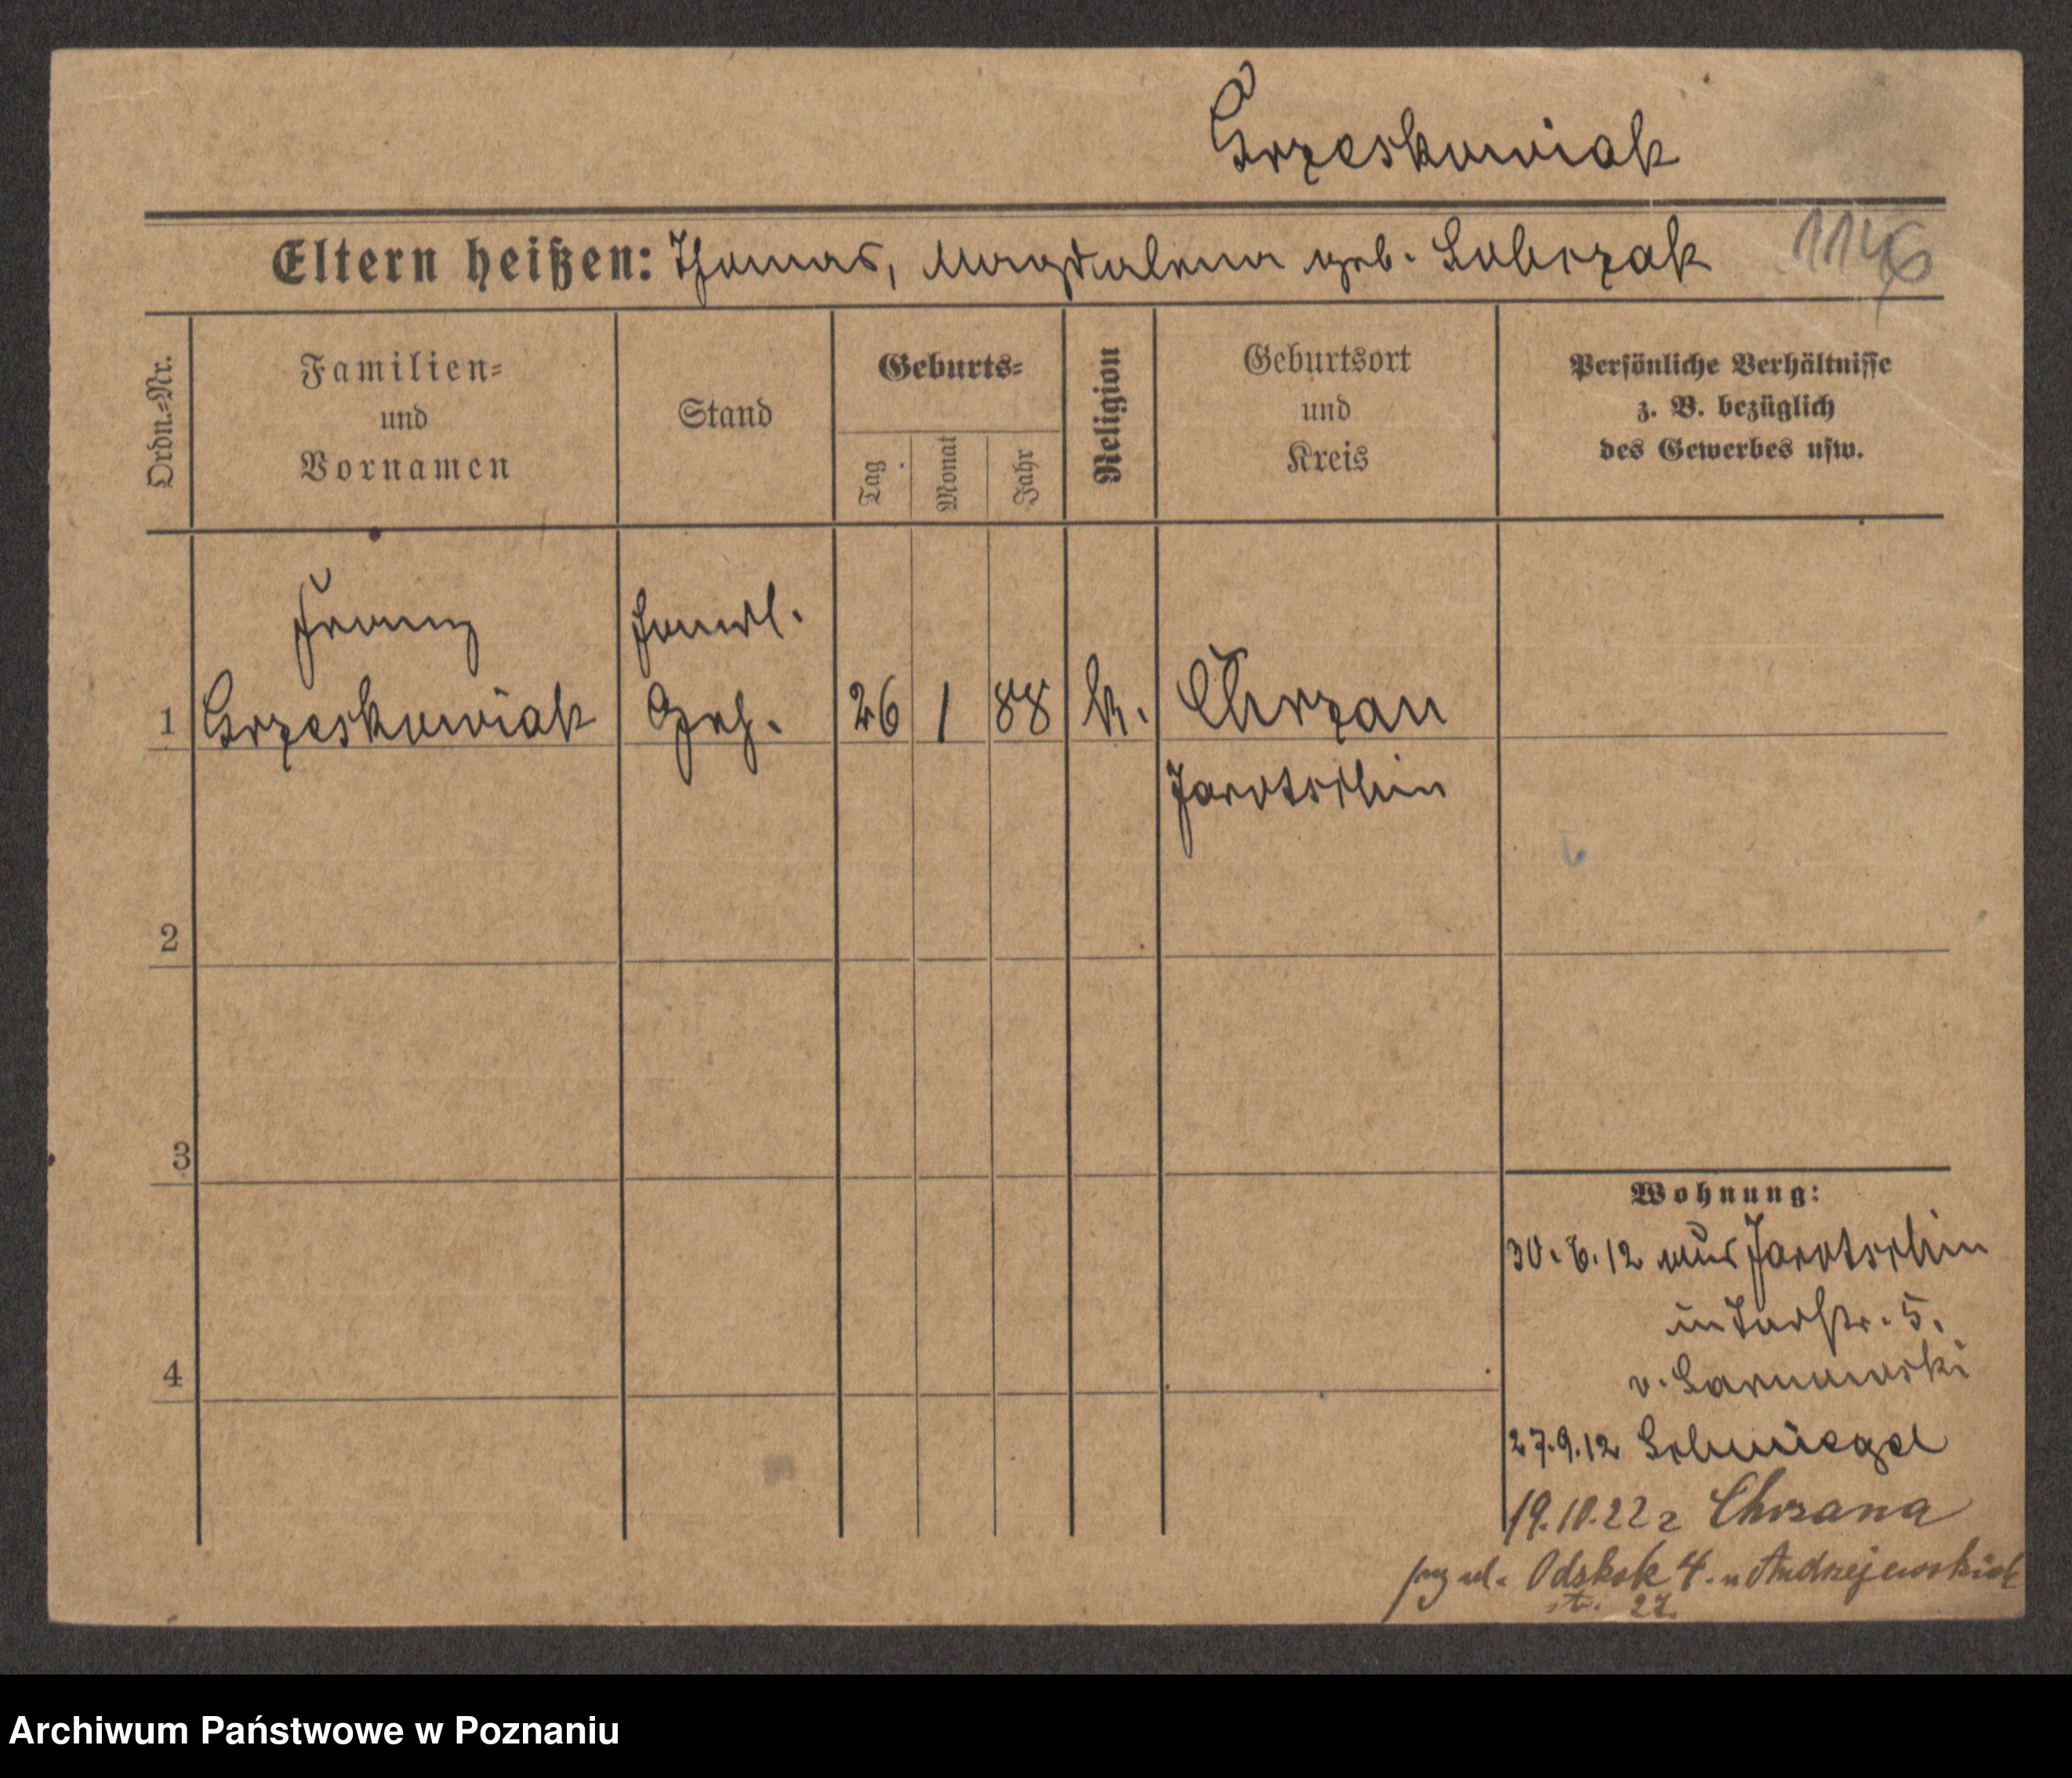 Grzeskowiak
Eltern heißen: Thomas, Magdalena geb. Sobczak 1146
Ordn.-Nr.
Familien-
und
Vornamen
Stand
Geburts-
Tag
Monat
Jahr
Religion
Geburtsort
und
Kreis
Persönliche Verhältnisse
z. B. bezüglich
des Gewerbes usw.
Franz
Handl.
1 Grzeskowiak Geh. 26 1 88 k. Chrzan
Jarotschin
2
3
Wohnung:
30. 6. 12 aus Jarotschin
5.
4
v.
27.9.12 Schmiegel
19.10.22 z Chrzana
ul. Odskok 4. u Andrzejewskich
str. 27.
Archiwum Państwowe w Poznaniu